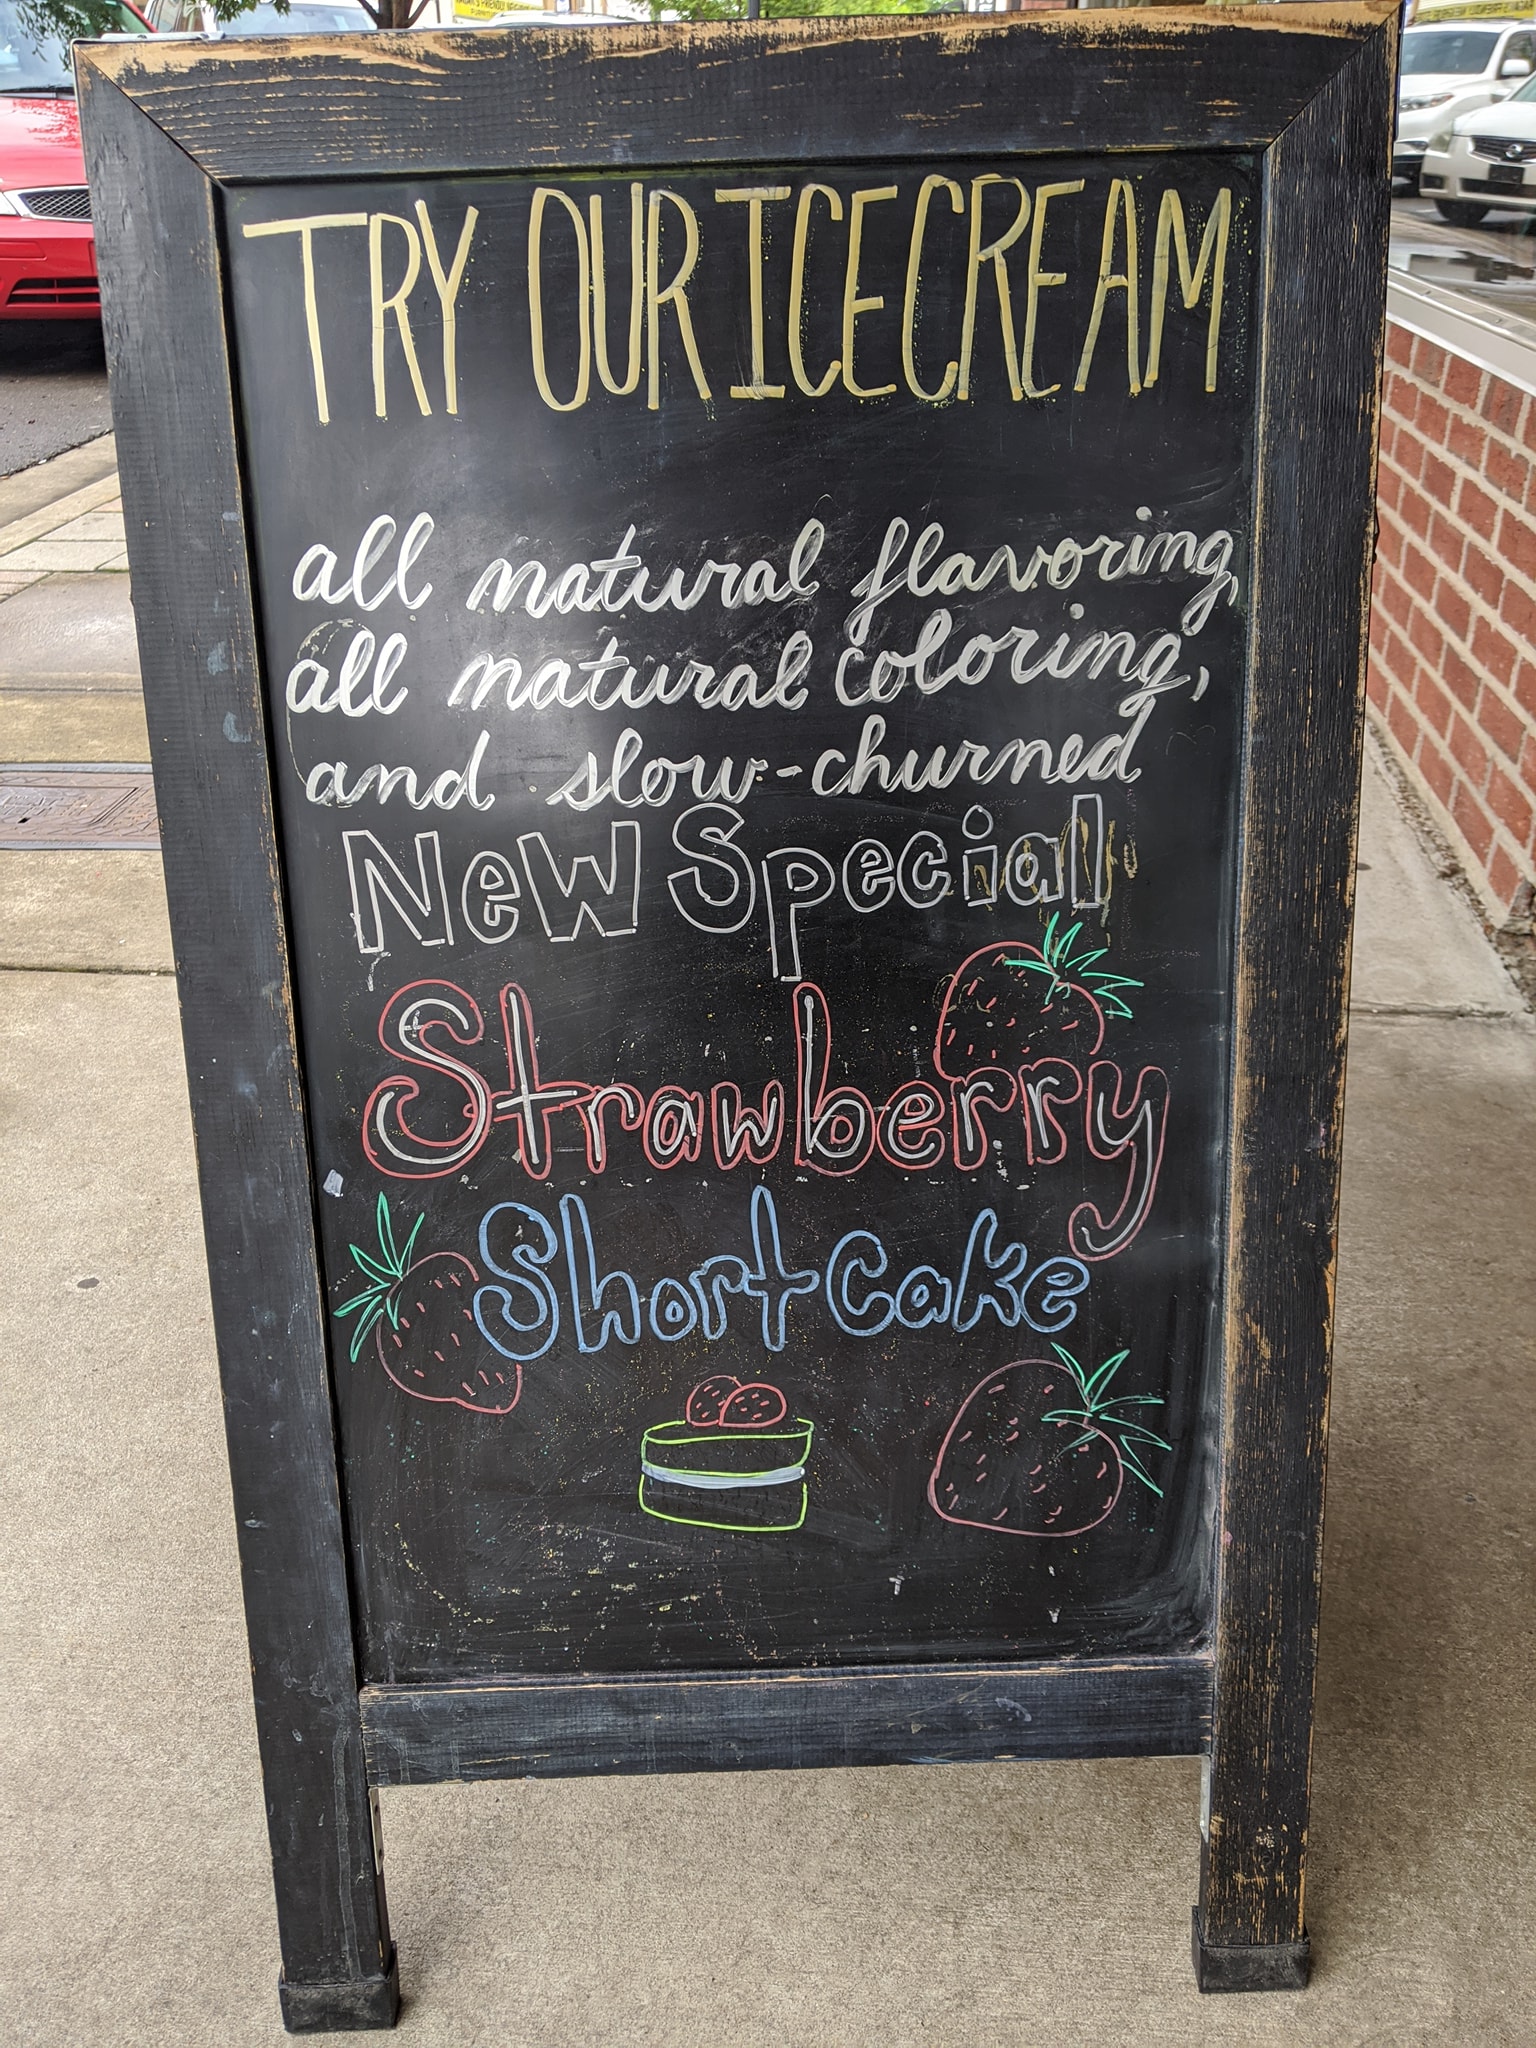 TRY OUR ICECREAM
all natural flavoring,
all natural coloring,
and slow-churned
New Special
Strawberry
Shortcake